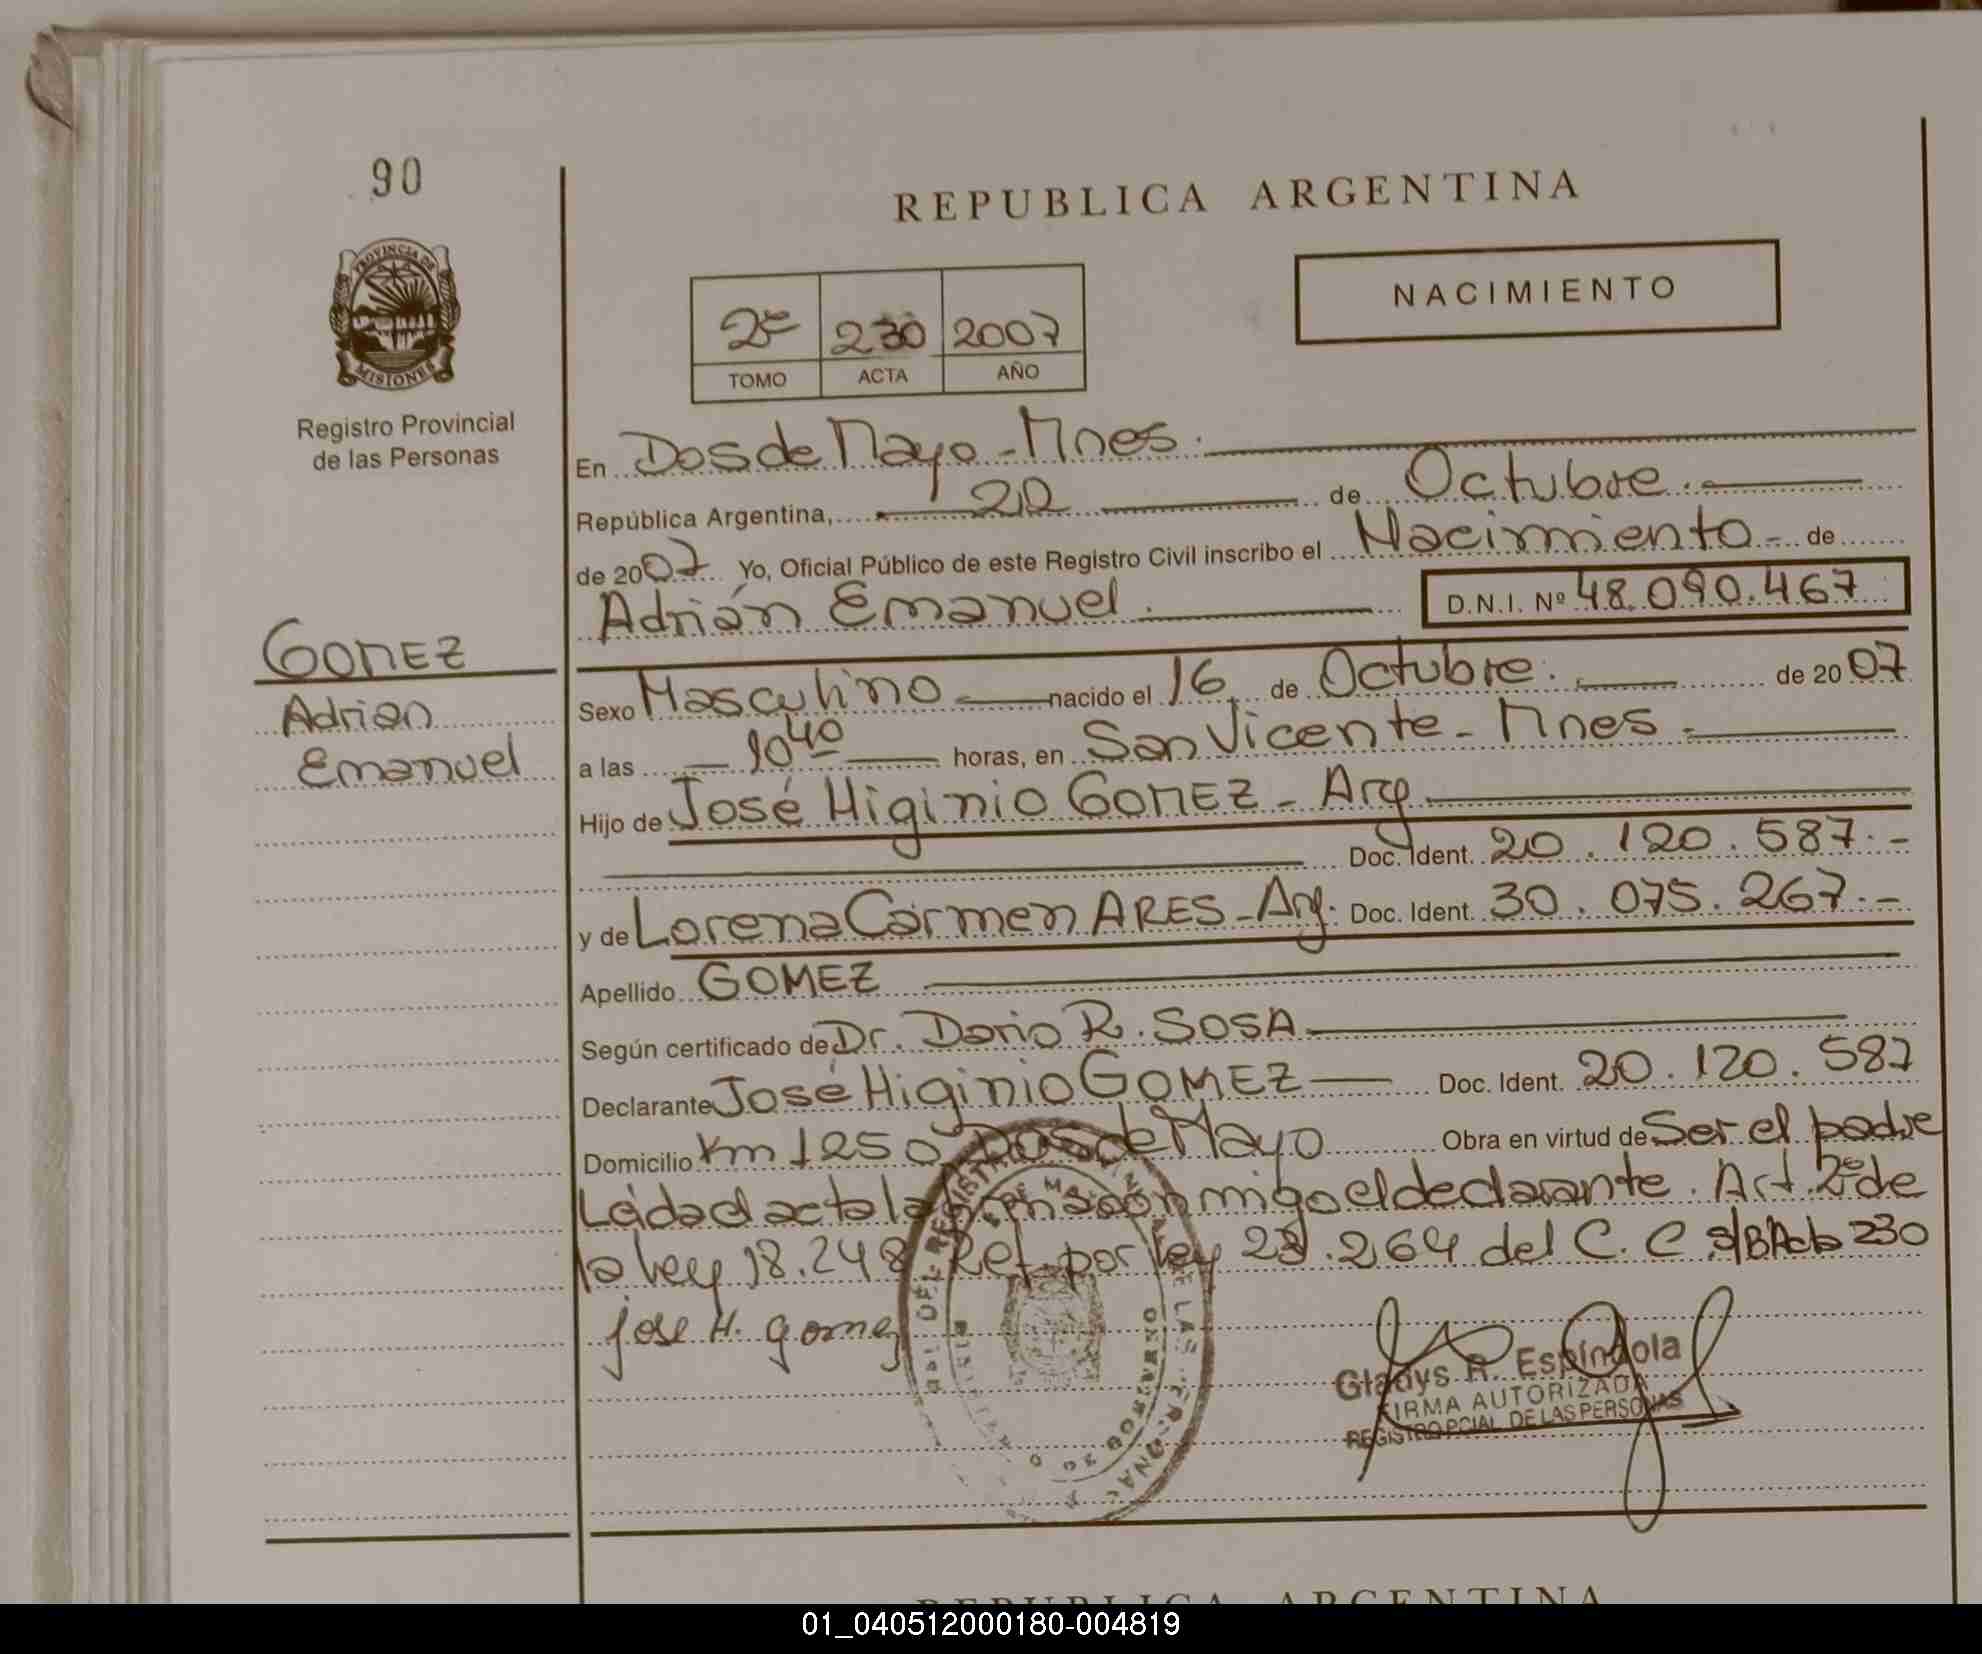 90
REPUBLICA ARGENTINA
PROVINCIA DE
MISIONES
Registro Provincial
de las Personas
NACIMIENTO
2º 230 2007
TOMO ACTA AÑO
En Dos de Mayo - Mnes.
República Argentina, 22 de Octubre.
de 2007 Yo, Oficial Público de este Registro Civil inscribo el Nacimiento - de
Adrián Emanuel. D.N.I. Nº 48.090.467
GOMEZ
Adrian
Emanuel
Sexo Masculino nacido el 16 de Octubre. de 2007
a las 10 40 horas, en San Vicente - Mnes
Hijo de José Higinio GOMEZ - Arg.
Doc. Ident. 20.120.587.-
y de Lorena Carmen ARES - Arg. Doc. Ident. 30.075.267.-
Apellido GOMEZ
Según certificado de Dr. Dario R. SOSA
Declarante José Higinio GOMEZ Doc. Ident. 20.120.587
Domicilio Km 1250 Dos de Mayo Obra en virtud de Ser el padre
Leída el acta la firma conmigo el declarante. Art. 2º de
la ley 18.248 Ref. por ley 23.264 del C.C S/B Acta 230
jose H. gomez
Gladys R. Espíndola
FIRMA AUTORIZADA
REGISTRO PCIAL. DE LAS PERSONAS
REPUBLICA ARGENTINA
01_040512000180-004819